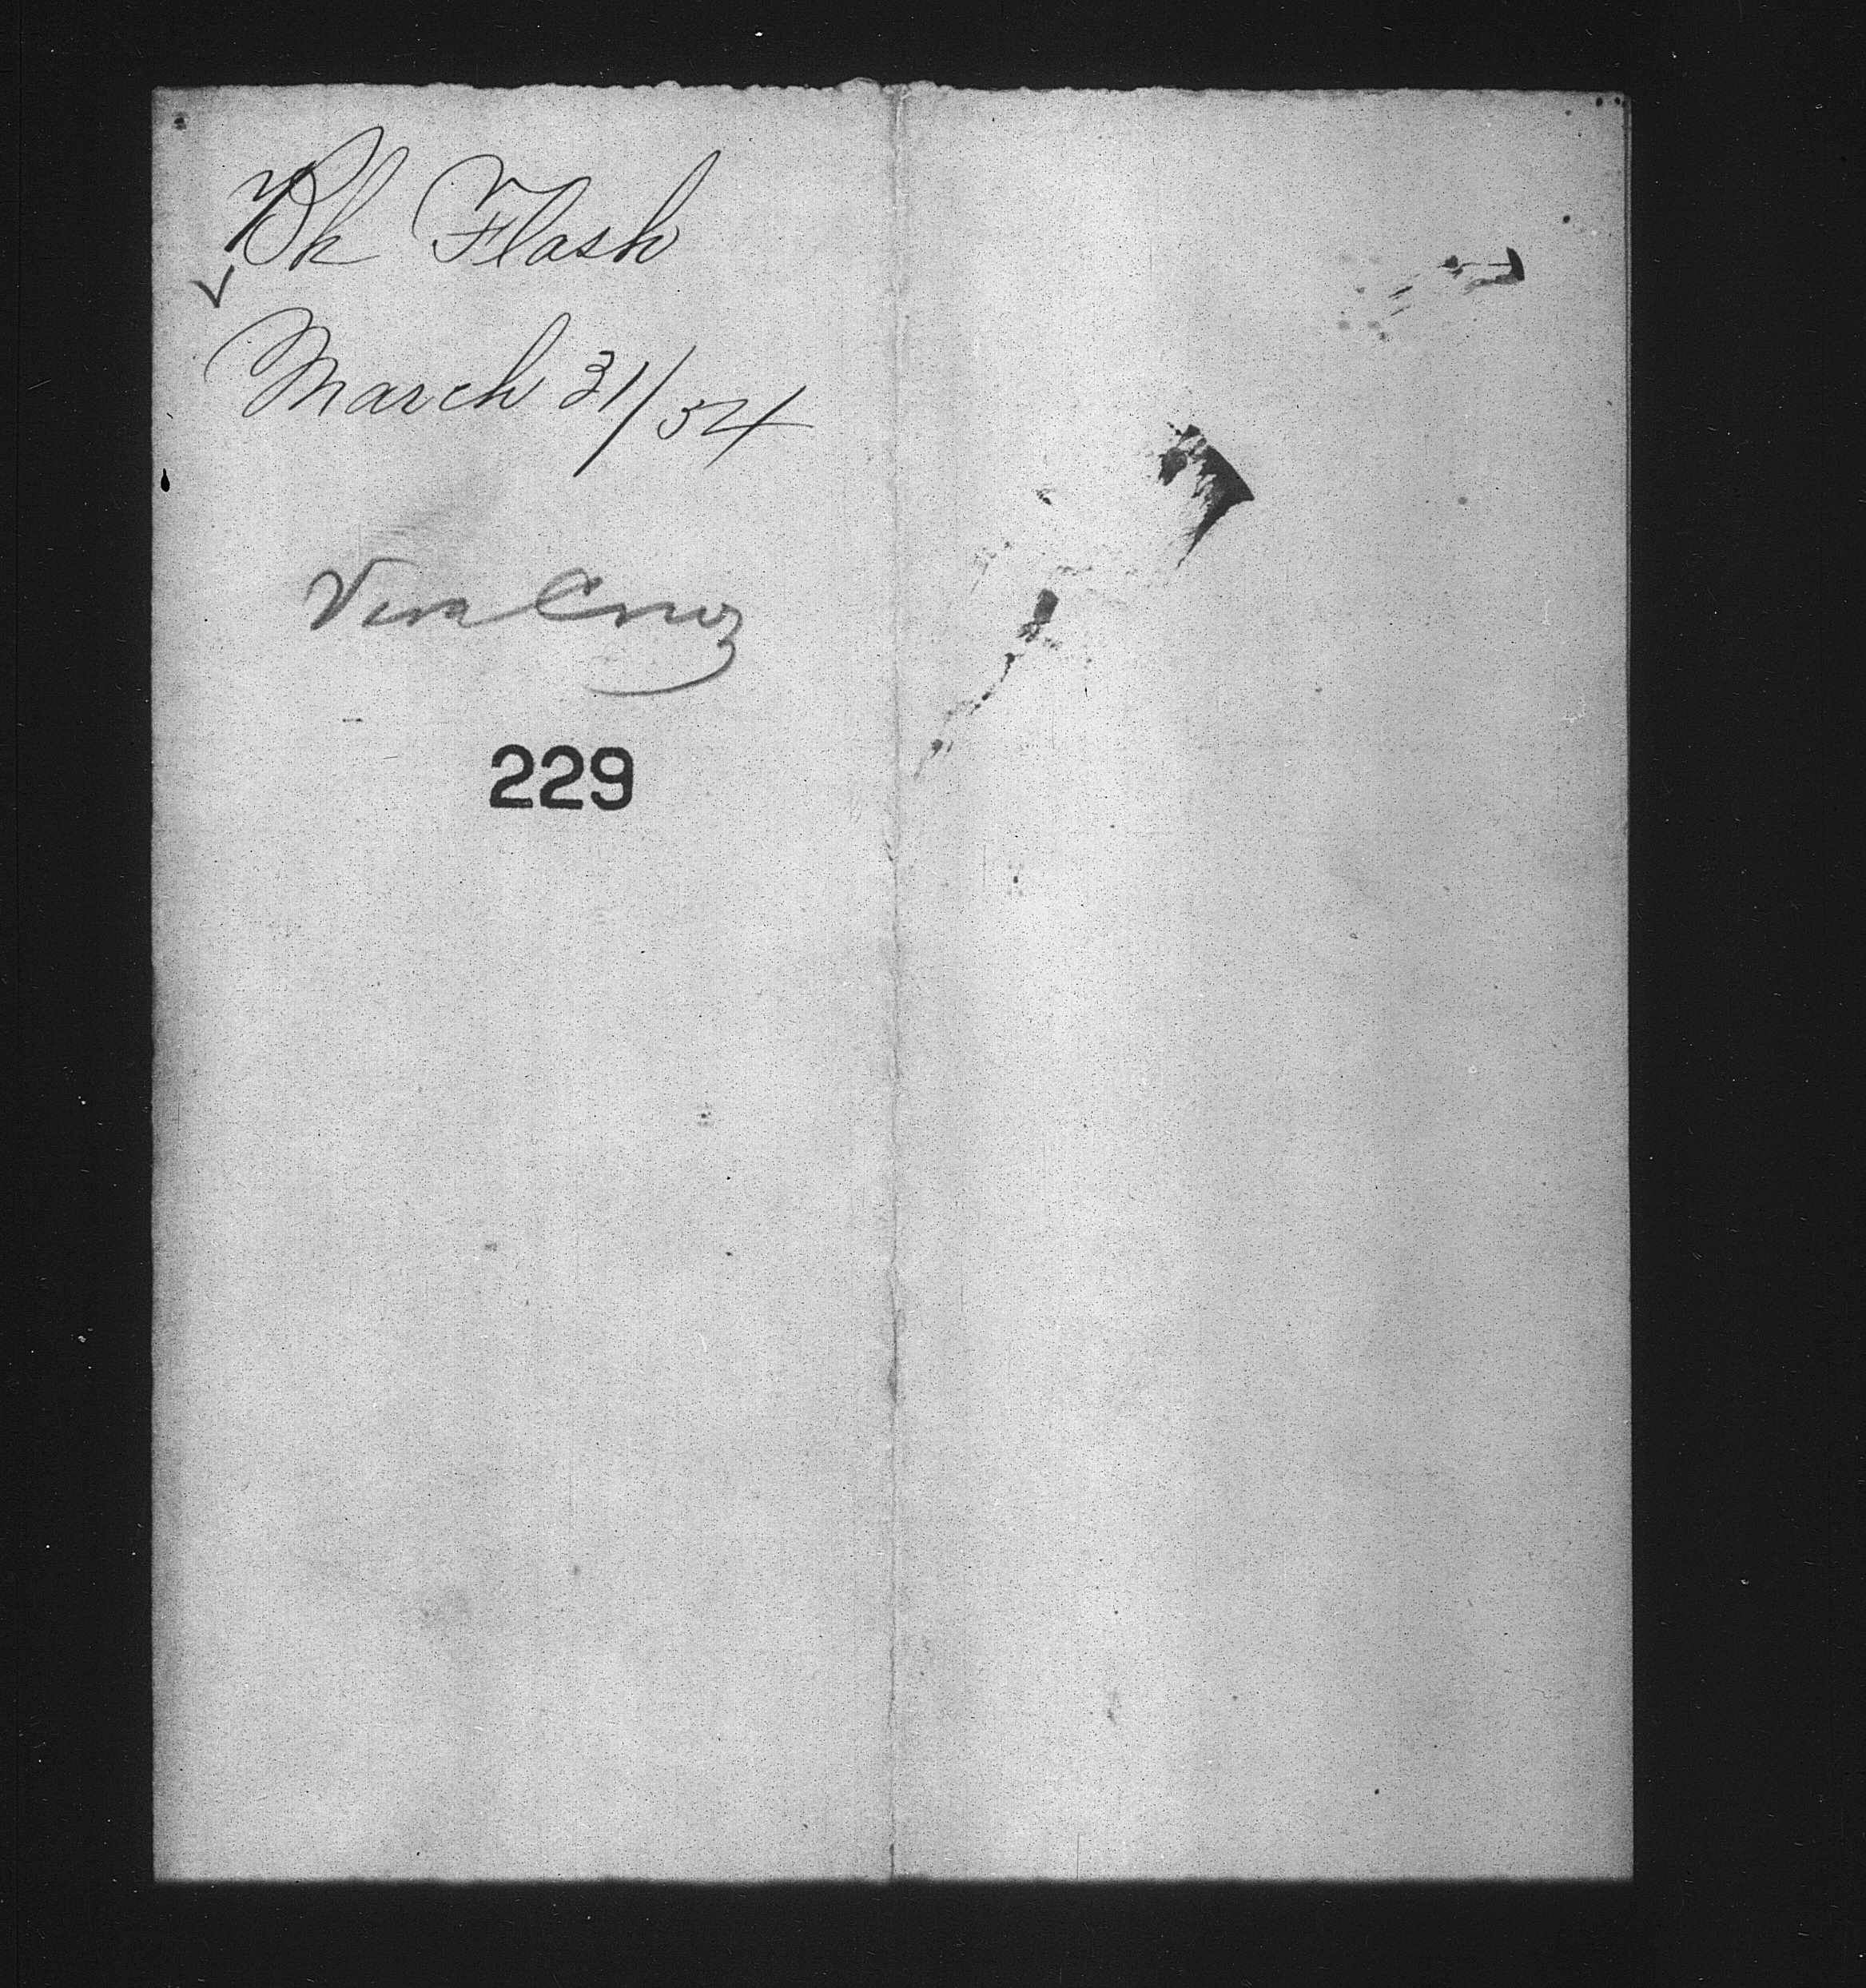 Bk Flash
March 31/54
Vera Cruz
229